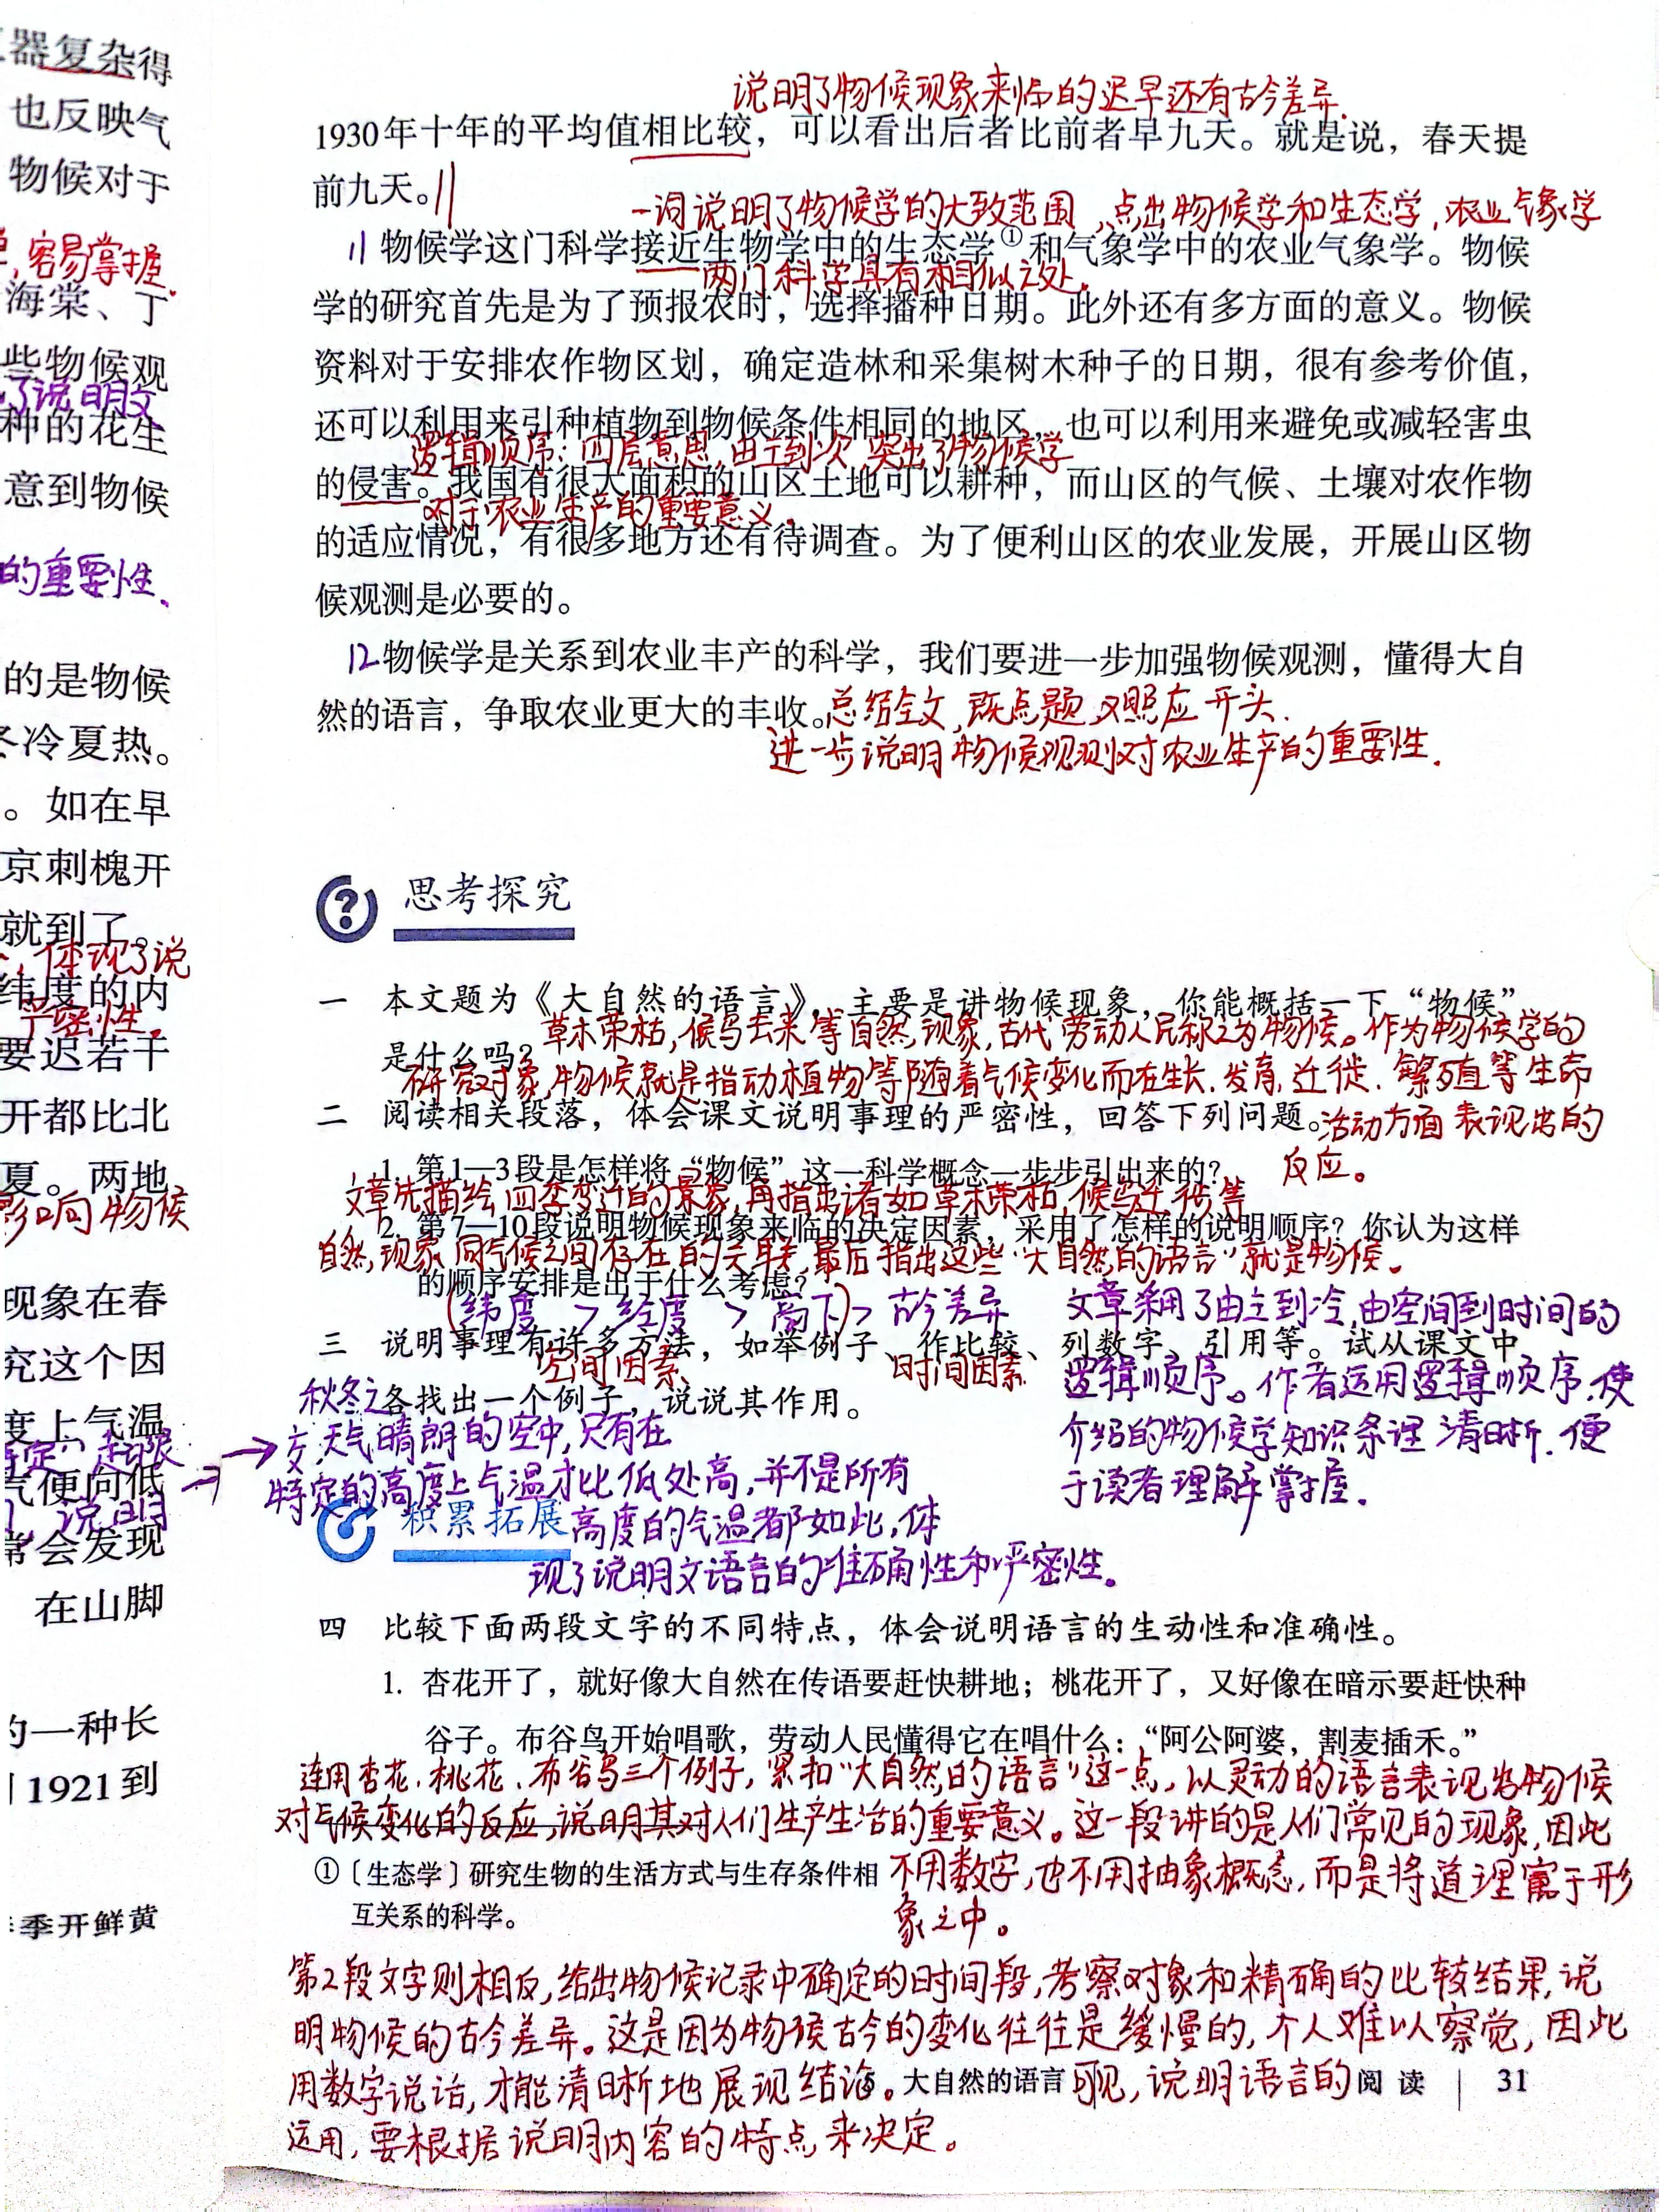 器复杂得
也反映气
物候对于
容易掌握.
海棠、丁
些物候观
了说明文
种的花生
意到物候
的重要性、
的是物候
冬冷夏热。
。如在早
京刺槐开
就到了。
,体现了说
纬度的内
严密性。
要迟若干
开都比北
夏。两地
影响物候
现象在春
究这个因
度上气温
气便向低
说明
常会发现
在山脚
的一种长
1921到
季开鲜黄
说明了物候现象来临的迟早还有古今差异.
1930年十年的平均值相比较，可以看出后者比前者早九天。就是说，春天提
前九天。
一词说明了物候学的大致范围,点出物候学和生态学,农业气象学
11 物候学这门科学接近生物学中的生态学①和气象学中的农业气象学。物候
两门科学具有相似之处.
学的研究首先是为了预报农时，选择播种日期。此外还有多方面的意义。物候
资料对于安排农作物区划，确定造林和采集树木种子的日期，很有参考价值，
还可以利用来引种植物到物候条件相同的地区，也可以利用来避免或减轻害虫
逻辑顺序:四层意思,由主到次,突出了物候学
的侵害。我国有很大面积的山区土地可以耕种，而山区的气候、土壤对农作物
对于农业生产的重要意义.
的适应情况，有很多地方还有待调查。为了便利山区的农业发展，开展山区物
候观测是必要的。
12 物候学是关系到农业丰产的科学，我们要进一步加强物候观测，懂得大自
然的语言，争取农业更大的丰收。总结全文,既点题,又照应开头.
进一步说明物候观测对农业生产的重要性.
思考探究
一 本文题为《大自然的语言》，主要是讲物候现象，你能概括一下“物候”
草木荣枯,候鸟去来等自然现象,古代劳动人民称之为物候。作为物候学的
是什么吗？
研究对象,物候就是指动植物等随着气候变化而在生长.发育.迁徙.繁殖等生命
二 阅读相关段落，体会课文说明事理的严密性，回答下列问题。活动方面表现出的
反应。
1. 第1—3段是怎样将“物候”这一科学概念一步步引出来的？
文章先描绘四季变迁的景象,再指出诸如草木荣枯,候鸟迁徙等
2. 第7—10段说明物候现象来临的决定因素，采用了怎样的说明顺序？你认为这样
自然现象同气候之间存在的关联,最后指出这些“大自然的语言”就是物候。
的顺序安排是出于什么考虑？
(纬度 > 经度 > 高下) > 古今差异
文章采用了由主到次,由空间到时间的
三 说明事理有许多方法，如举例子、作比较、列数字、引用等。试从课文中
空间因素 时间因素
逻辑顺序。作者运用逻辑顺序,使
秋冬之
各找出一个例子，说说其作用。
交,天气晴朗的空中,只有在
介绍的物候学知识条理清晰.便
特定的高度上气温才比低处高,并不是所有
于读者理解掌握.
积累拓展
高度的气温都如此,体
现了说明文语言的准确性和严密性。
四 比较下面两段文字的不同特点，体会说明语言的生动性和准确性。
1. 杏花开了，就好像大自然在传语要赶快耕地；桃花开了，又好像在暗示要赶快种
谷子。布谷鸟开始唱歌，劳动人民懂得它在唱什么：“阿公阿婆，割麦插禾。”
连用杏花.桃花.布谷鸟三个例子,紧扣“大自然的语言”这一点,以灵动的语言表现出物候
对气候变化的反应,说明其对人们生产生活的重要意义。这一段讲的是人们常见的现象,因此
①〔生态学〕研究生物的生活方式与生存条件相
不用数字,也不用抽象概念,而是将道理寓于形
互关系的科学。
象之中。
第2段文字则相反,给出物候记录中确定的时间段,考察对象和精确的比较结果,说
明物候的古今差异。这是因为物候古今的变化往往是缓慢的,个人难以察觉,因此
用数字说话,才能清晰地展现结论。可见,说明语言的
大自然的语言 阅读 | 31
运用,要根据说明内容的特点来决定。